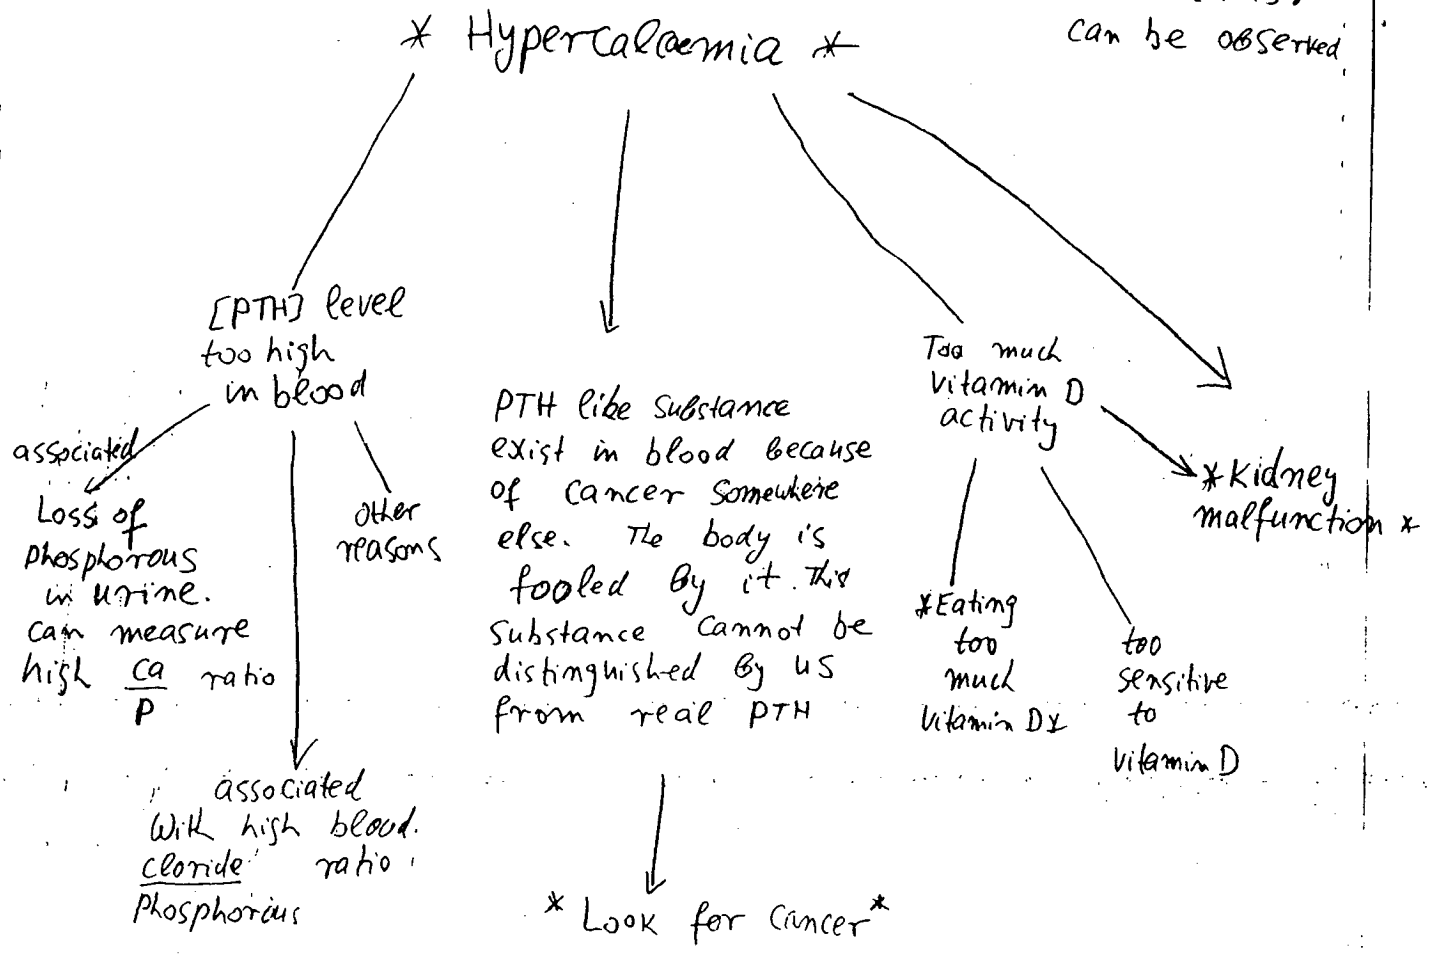 can be observed
* Hypercalaemia *
[PTH] level
too high
in blood
associated
Loss of
phosphorous
in urine.
can measure
high Ca ratio
P
associated
With high blood.
cloride ratio
phosphorous
other
reasons
PTH like substance
exist in blood because
of cancer somewhere
else. The body is
fooled by it. This
substance cannot be
distinguished by us
from real PTH
* Look for cancer *
Too much
vitamin D
activity
*Eating
too
much
vitamin D*
too
sensitive
to
vitamin D
*Kidney
malfunction *